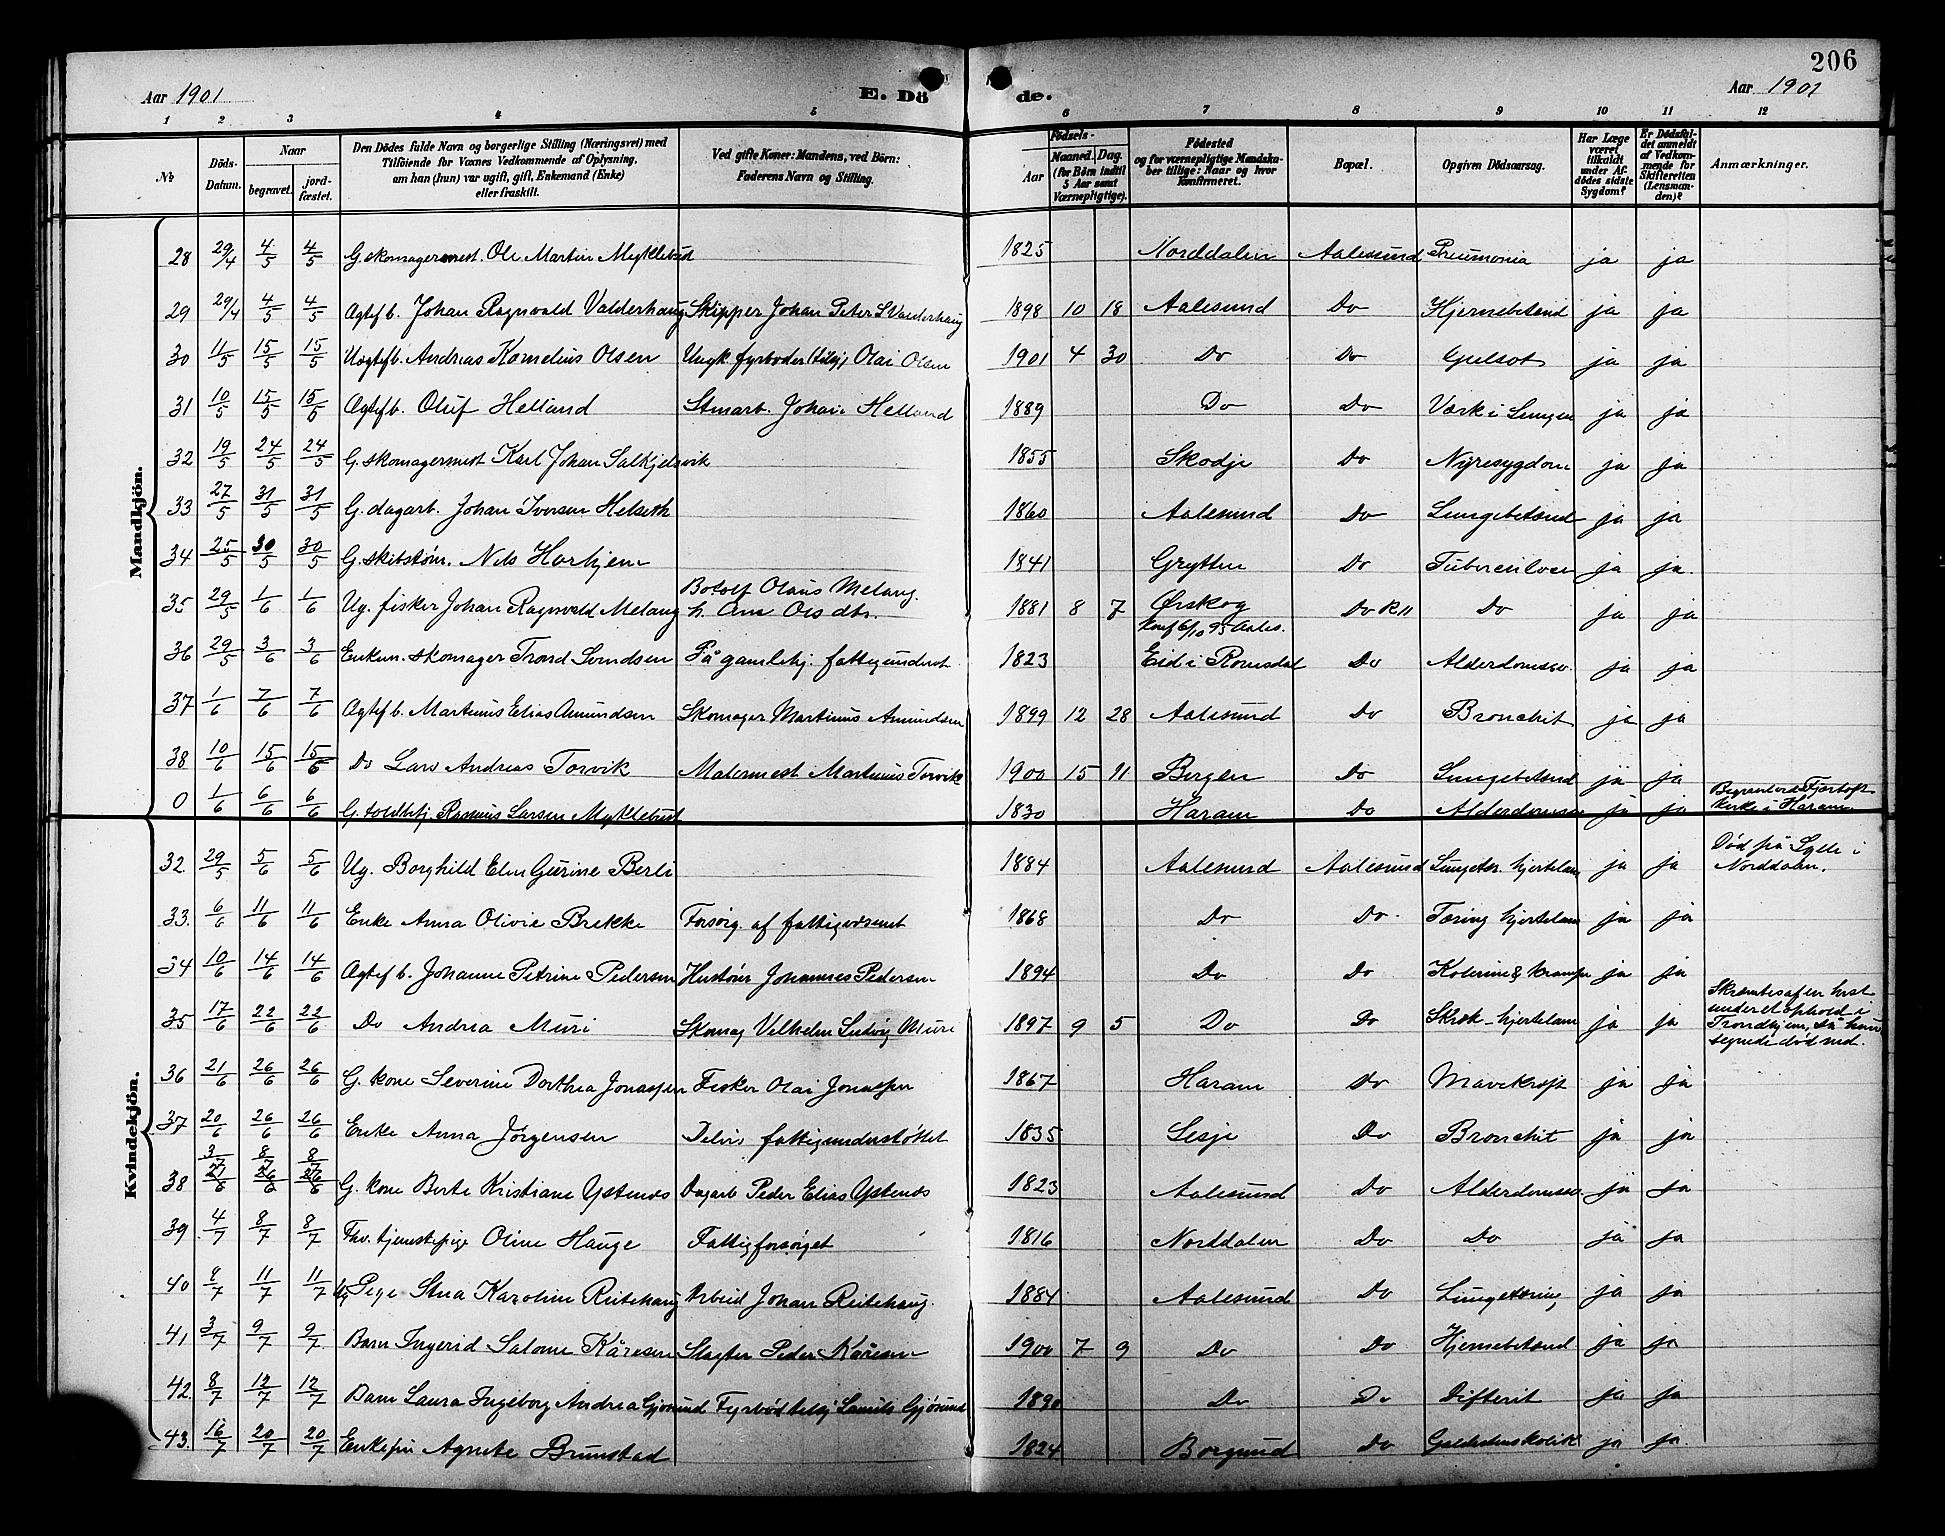 206
Aar 1901
E. Dö de.
Aar 1901
1 2 3 4 5 6 7 8 9 10 11 12
No
Döds-Datum.
Naar
begravet.
jord-fæstet.
Den Dödes fulde Navn og borgerlige Stilling (Næringsvei) med
Tilföiende for Voxnes Vedkommende af Oplysning,
om han (hun) var ugift, gift, Enkemand (Enke)
eller fraskilt.
Ved gifte Koner: Mandens, ved Börn:
Faderens Navn og Stilling.
Födsels-
Aar
Maaned. Dag.
(for Börn indtil
5 Aar samt
Værnepligtige).
Födested
og for værnepligtige Mandska-
ber tillige: Naar og hvor
konfirmeret.
Bopæl.
Opgiven Dödsaarsag.
Har Læge
været
tilkaldt
under Af-
dödes sidste
Sygdom?
Er Dödsfal-
det anmeldt
af Vedkom-
mende for
Skifteretten
(Lensman-
den)?
Anmærkninger.
Mandkjön.
28 29/4 4/5 4/5 G. skomagermest. Ole Martin Myklebust 1825 Norddalen Aalesund Pneumonia ja ja
29 29/4 4/5 4/5 Ægtef b. Johan Ragnvald Valderhaug Skipper Johan Peter S Valderhaug 1898 10 18 Aalesund Do Hjernebetænd ja ja
30 11/5 15/5 15/5 Uægtef b. Andreas Kornelius Olsen Ungk. fyrbøder Olai Olsen 1901 4 30 Do Do Gulsot ja ja
31 10/5 15/5 15/5 Ægtef b. Oluf Helland Stenarb. Johan Helland 1889 Do Do Værk i Lungen ja ja
32 19/5 24/5 24/5 G. skomagermest Karl Johan Salkjelsvik 1855 Skodje Do Nyresygdom ja ja
33 27/5 31/5 31/5 G. dagarb. Johan Iversen Helseth 1860 Aalesund Do Lungebetænd ja ja
34 25/5 30/5 30/5 G. skibstøm. Nils Horhjem 1841 Grytten Do Tuberculose ja ja.
35 29/5 1/6 1/6 Ug. fisker Johan Ragnvald Melang Botolf Olaus Melang. h. Ane Ols dtr. 1881 8 7 Ørskog Konf 6/10 95 Aales. Do Do ja ja
36 29/5 3/6 3/6 Enkem. skomager Trond Svendsen På gamlehj. fattigunderst. 1823 Eid i Romsdal Do Alderdomssv. ja ja
37 1/6 7/6 7/6 Ægtef b. Martinus Elias Amundsen Skomager Martinus Amundsen 1899 12 28 Aalesund Do Bronchit ja ja
38 10/6 15/6 15/6 Do Lars Andreas Torvik Malermest Martinus Torvik 1900 15 11 Bergen Do Lungebetænd ja ja
0 1/6 6/6 6/6 G. toldbetj. Rasmus Larsen Myklebust 1830 Haram Do Alderdomssv ja ja Begravet ved Fjørtoft kirke i Haram
Kvindekjön.
32 29/5 5/6 5/6 Ug. Borghild Elen Gurine Berli 1884 Aalesund Aalesund Lungetær. hjertelam ja ja Død på Sylte i Norddalen.
33. 6/6 11/6 11/6 Enke Anna Olivie Brekke Forsørg. af fattigvæsenet 1868 Do Do Tæring hjertelam ja ja
34 10/6 14/6 14/6 Ægtef b. Johanne Petrine Pedersen Hustøm Johannes Pedersen 1894 Do Do Kolerine & krampe ja ja
35 17/6 22/6 22/6 Do Andrea Muri Skomag Vilhelm Ludvig Muri 1897 9 5 Do Do Skræk - hjertelam ja ja Skræmtes af en hest under et ophold i Trondhjem, så hun segnede død ned.
36 21/6 26/6 26/6 G. kone Severine Dorthea Jonassen Fisker Olai Jonassen 1867 Haram Do Mavekræft ja ja
37 20/6 26/6 26/6 Enke Anna Jörgensen Delvis fattigunderstøttet 1835 Lesje Do Bronchit ja ja
38 3/7 8/7 8/7 G. kone Berte Kristiane Ystenes Dagarb Peder Elias Ystenes 1823 Aalesund Do Alderdomssv. ja ja
39 4/7 8/7 8/7 Fhv. tjenestepige Oline Hauge Fattigforsørget 1816 Norddalen Do Do ja ja
40 8/7 11/7 11/7 Ug Pige Stina Karoline Reitehaug Arbeid Johan Reitehaug. 1884 Aalesund Do Lungetæring ja ja
41 3/7 9/7 9/7 Barn Ingerid Salome Kåresen Slagter Peder Kåresen 1900 7 9 Do Do Hjernebetænd ja ja
42 8/7 12/7 12/7 Barn Laura Ingeborg Andrea Gjøsund Fyrbød Gjøsund 1890 Do Do Difterit ja ja
43. 16/7 20/7 20/7 Enkefru Agnete Brunstad 1824 Borgund Do Galdestenskolik ja ja.